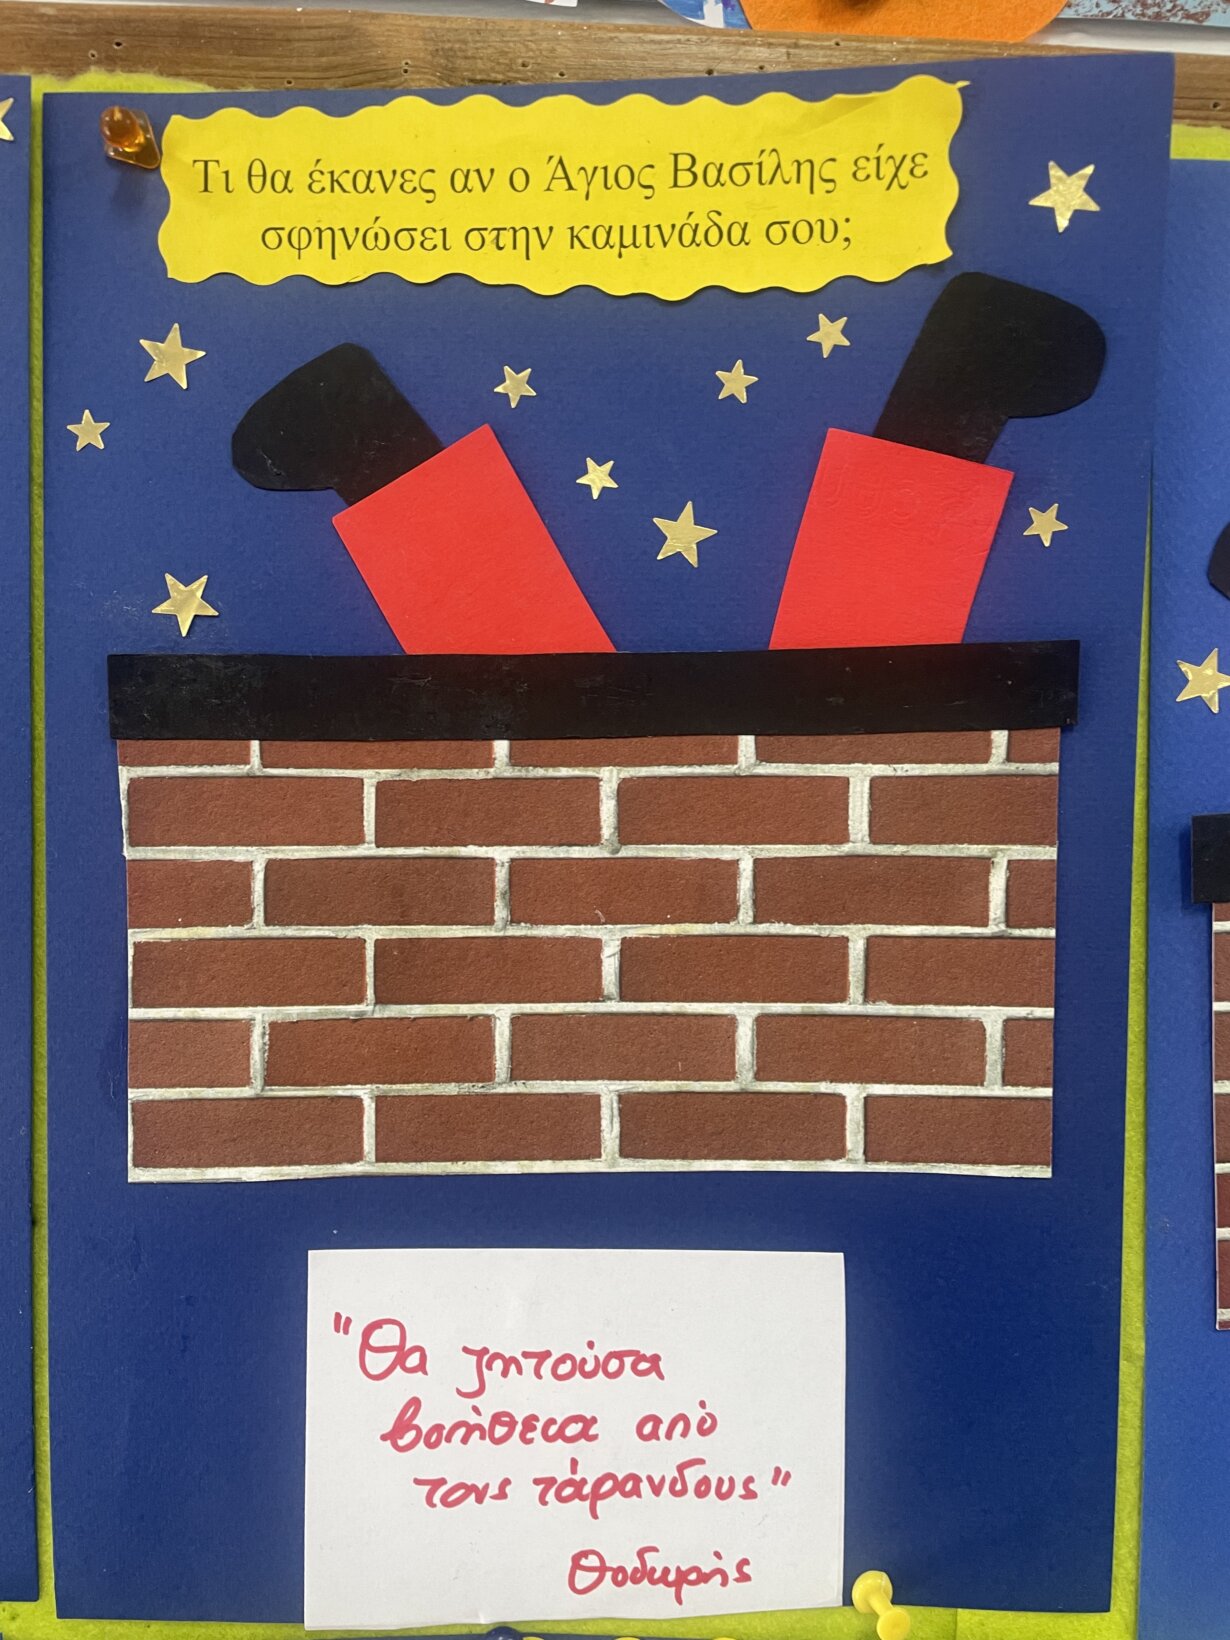 Τι θα έκανες αν ο Άγιος Βασίλης είχε
σφηνώσει στην καμινάδα σου;
"Θα ζητούσα
βοήθεια από
τους τάρανδους"
Θοδωρής